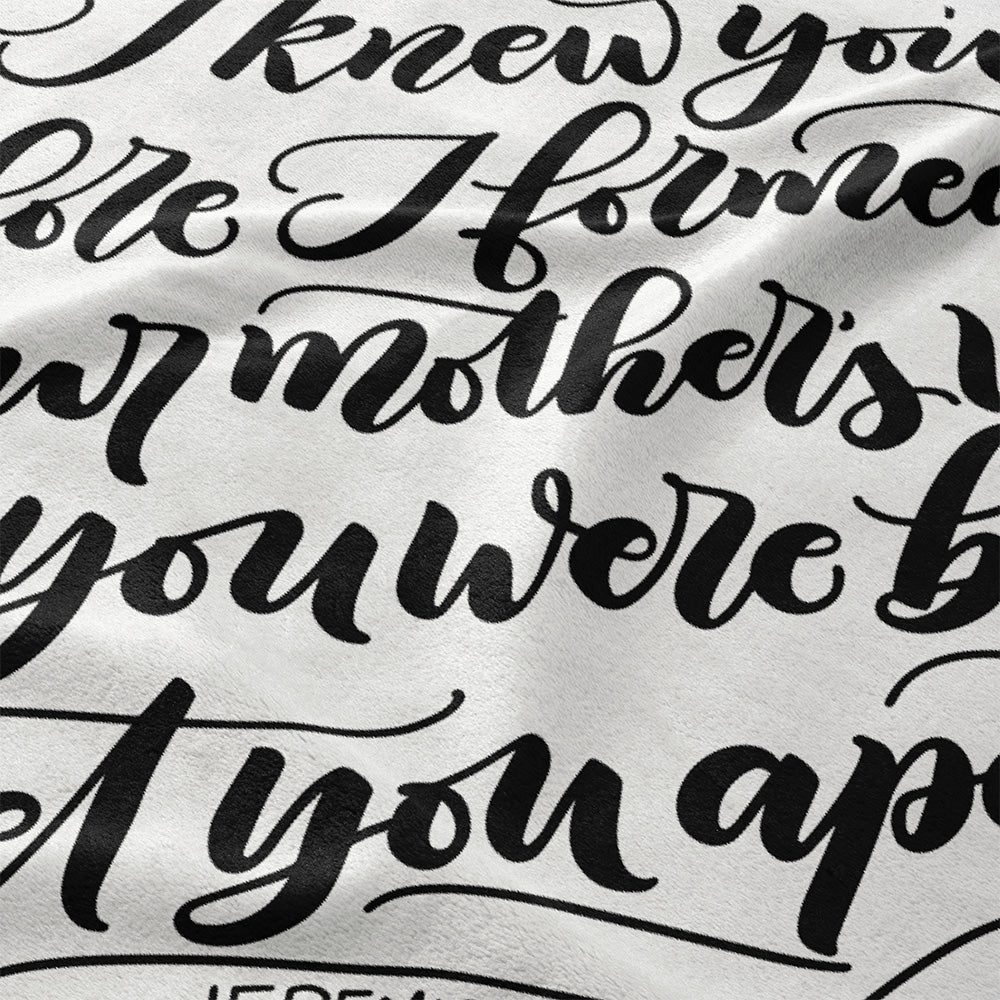 I knew you
fore I formed
ur mother's w
you were b
et you apa
JEREMI